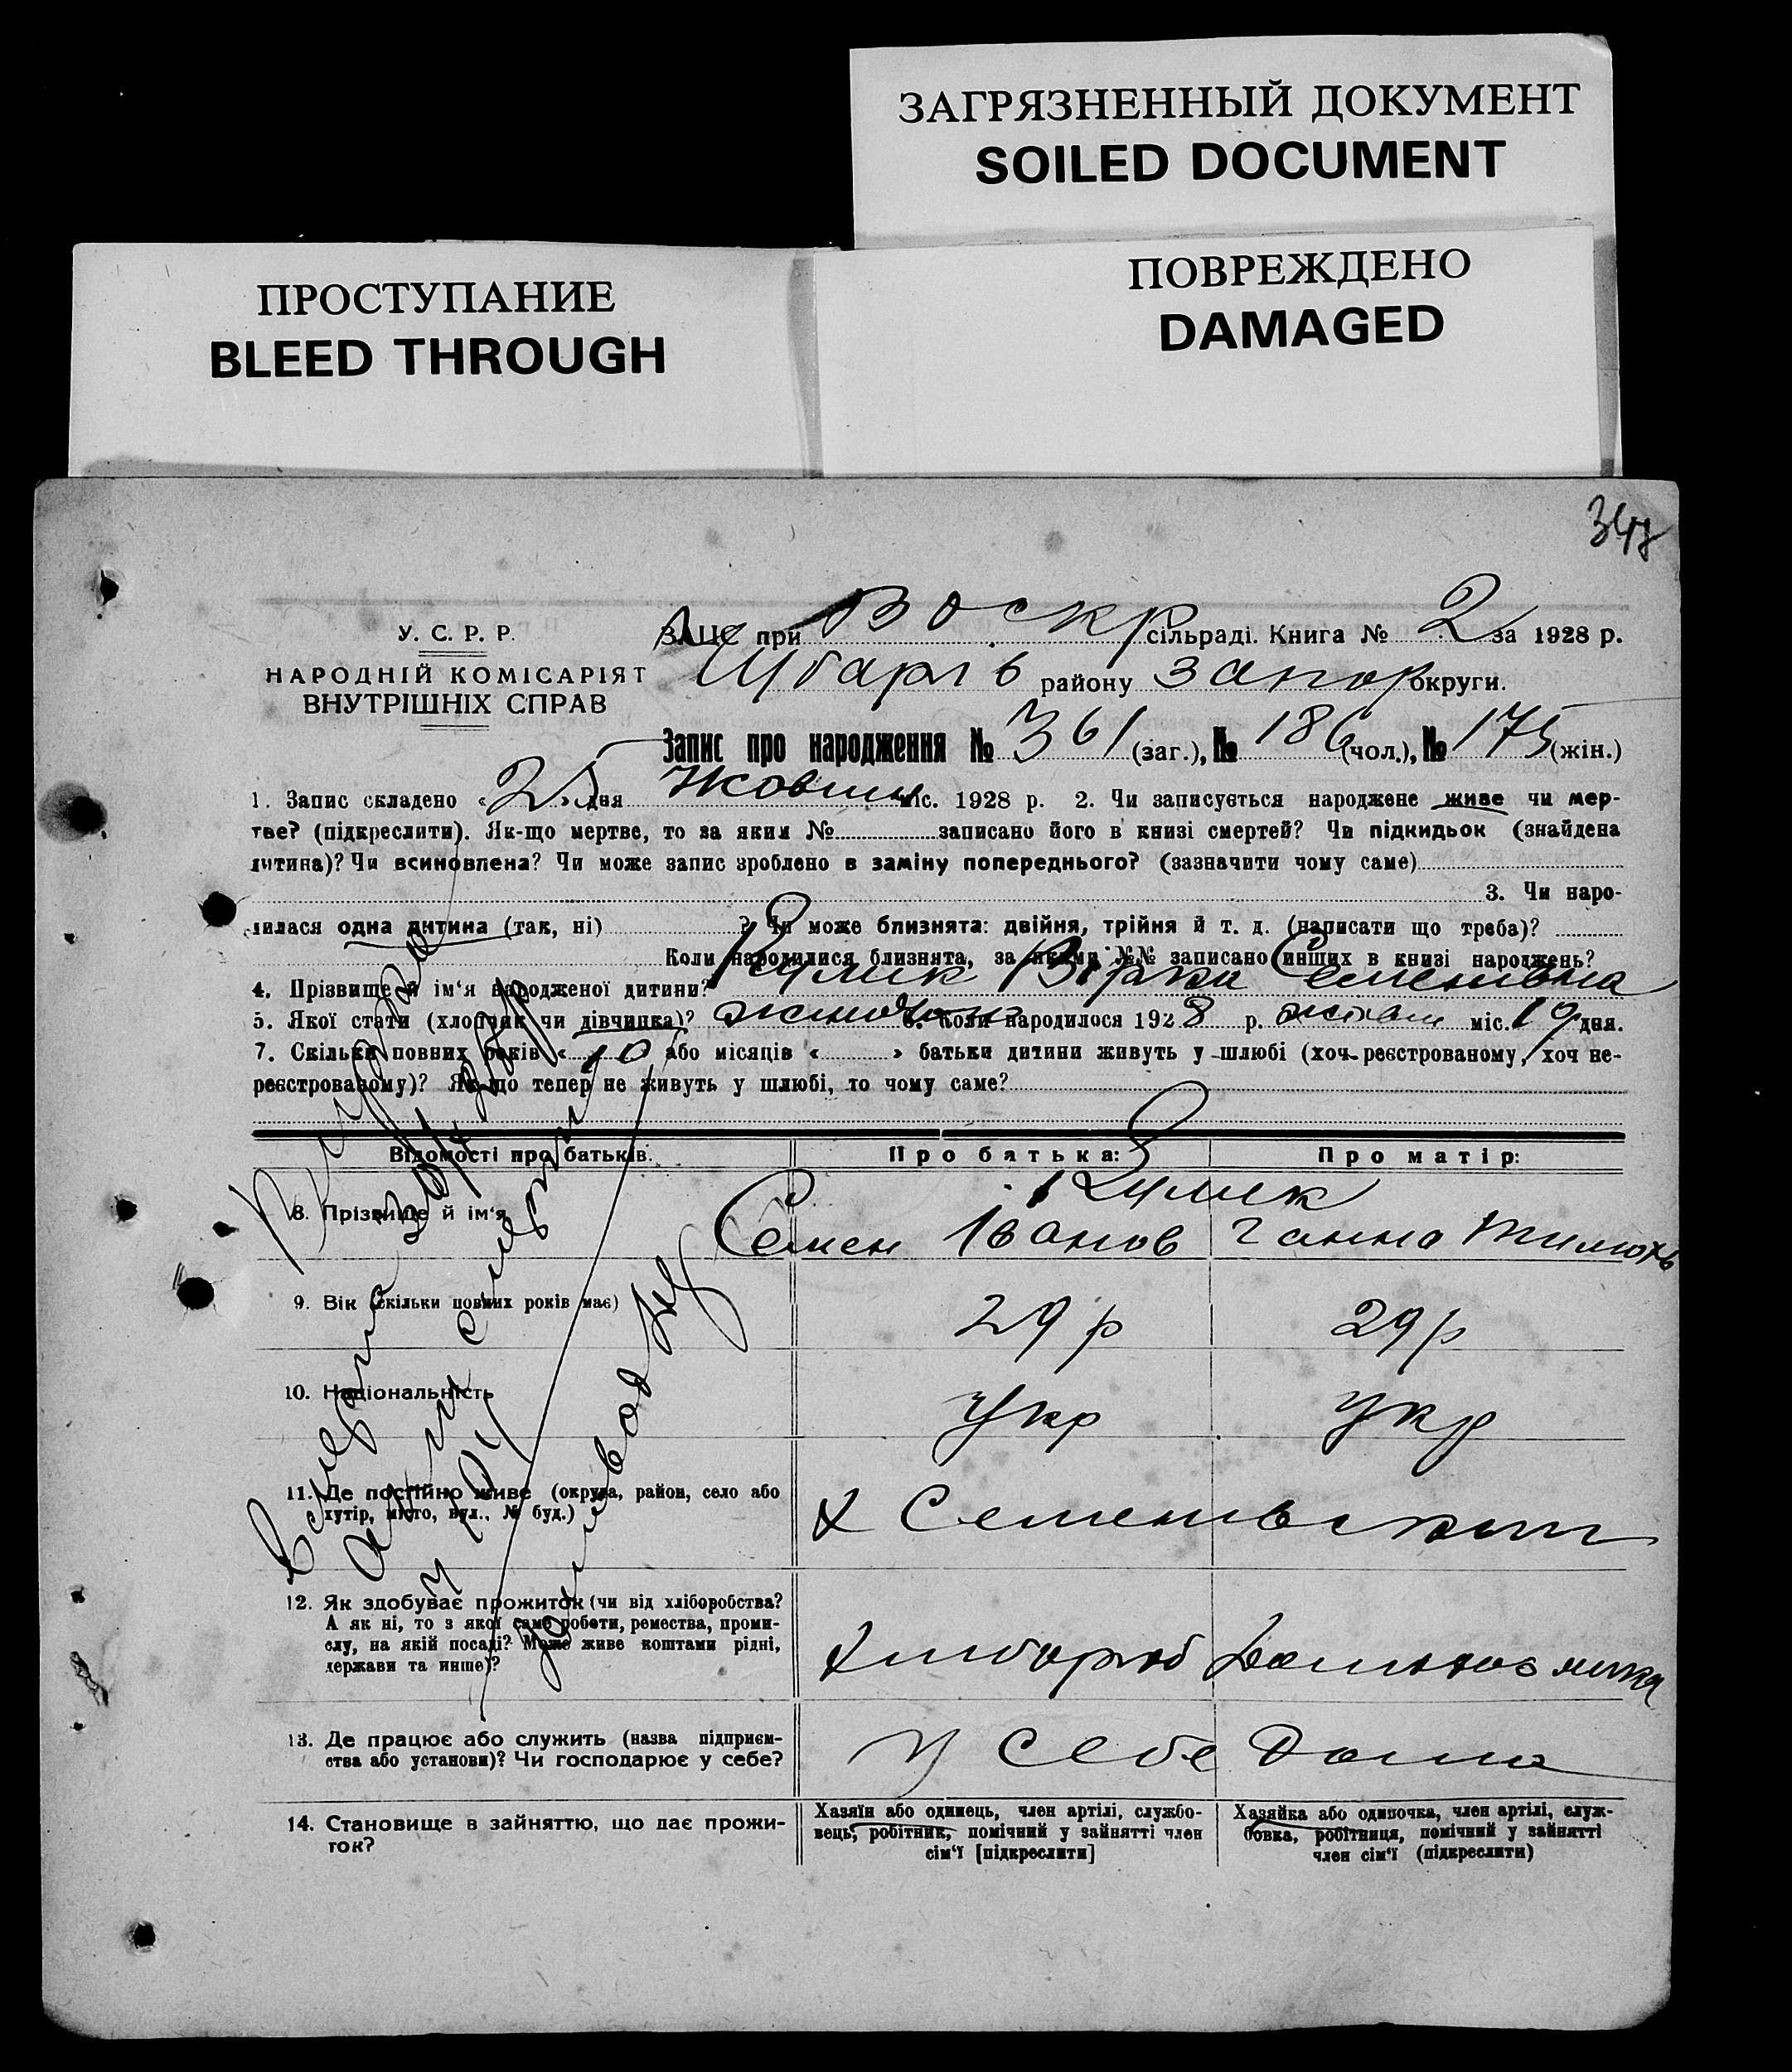 ЗАГРЯЗНЕННЫЙ ДОКУМЕНТ
SOILED DOCUMENT
ПРОСТУПАНИЕ
BLEED THROUGH
ПОВРЕЖДЕНО
DAMAGED
У. С. Р. Р.
НАРОДНІЙ КОМІСАРІЯТ
ВНУТРІШНІХ СПРАВ
ЗАЦС при Воскр сільраді. Книга № 2 за 1928 р.
району Запор округи.
Запис про народження № 361 (заг.), № 186 (чол.), № 175 (жін.)
1. Запис складено « 25 » дня Жовтн міс. 1928 р. 2. Чи записується народжене живе чи мер-
тве? (підкреслити). Як-що мертве, то за яким № записано його в книзі смертей? Чи підкидьок (знайдена
дитина)? Чи всиновлена? Чи може запис зроблено в заміну попереднього? (зазначити чому саме)
3. Чи наро-
дилася одна дитина (так, ні) ? Чи може близнята: двійня, трійня й т. д. (написати що треба)?
Коли народилися близнята, за якими №№ записано инших в книзі народжень?
4. Прізвище й ім‘я народженої дитини? Кулик Вірка Семенівна
5. Якої стати (хлопчик чи дівчинка)? жиноча 6. Коли народилося 1928 р. міс. 19 дня.
7. Скільки повних років « 10 або місяців « » батьки дитини живуть у шлюбі (хоч реєстрованому, хоч не-
реєстрованому)? Як-що тепер не живуть у шлюбі, то чому саме?
Відомості про батьків. Про батька: Про матір:
Кулик
8. Прізвище й ім‘я Семен Іванов Ганна
9. Вік (скільки повних років має) 29 р 29 р
10. Національність Укр Укр
11. Де постійно живе (округа, район, село або
хутір, місто, вул., № буд.) х
12. Як здобуває прожиток (чи від хліборобства?
А як ні, то з якої саме роботи, ремества, проми-
слу, на якій посаді? Може живе коштами рідні,
держави та инше)?
13. Де працює або служить (назва підприєм-
ства або установи)? Чи господарює у себе? У себе дома
14. Становище в зайняттю, що дає прожи-
ток?
Хазяїн або одинець, член артілі, службо-
вець, робітник, помічний у зайнятті член
сім‘ї [підкреслити]
Хазяйка або одиночка, член артілі, служ-
бовка, робітниця, помічний у зайнятті
член сім‘ї (підкреслити)